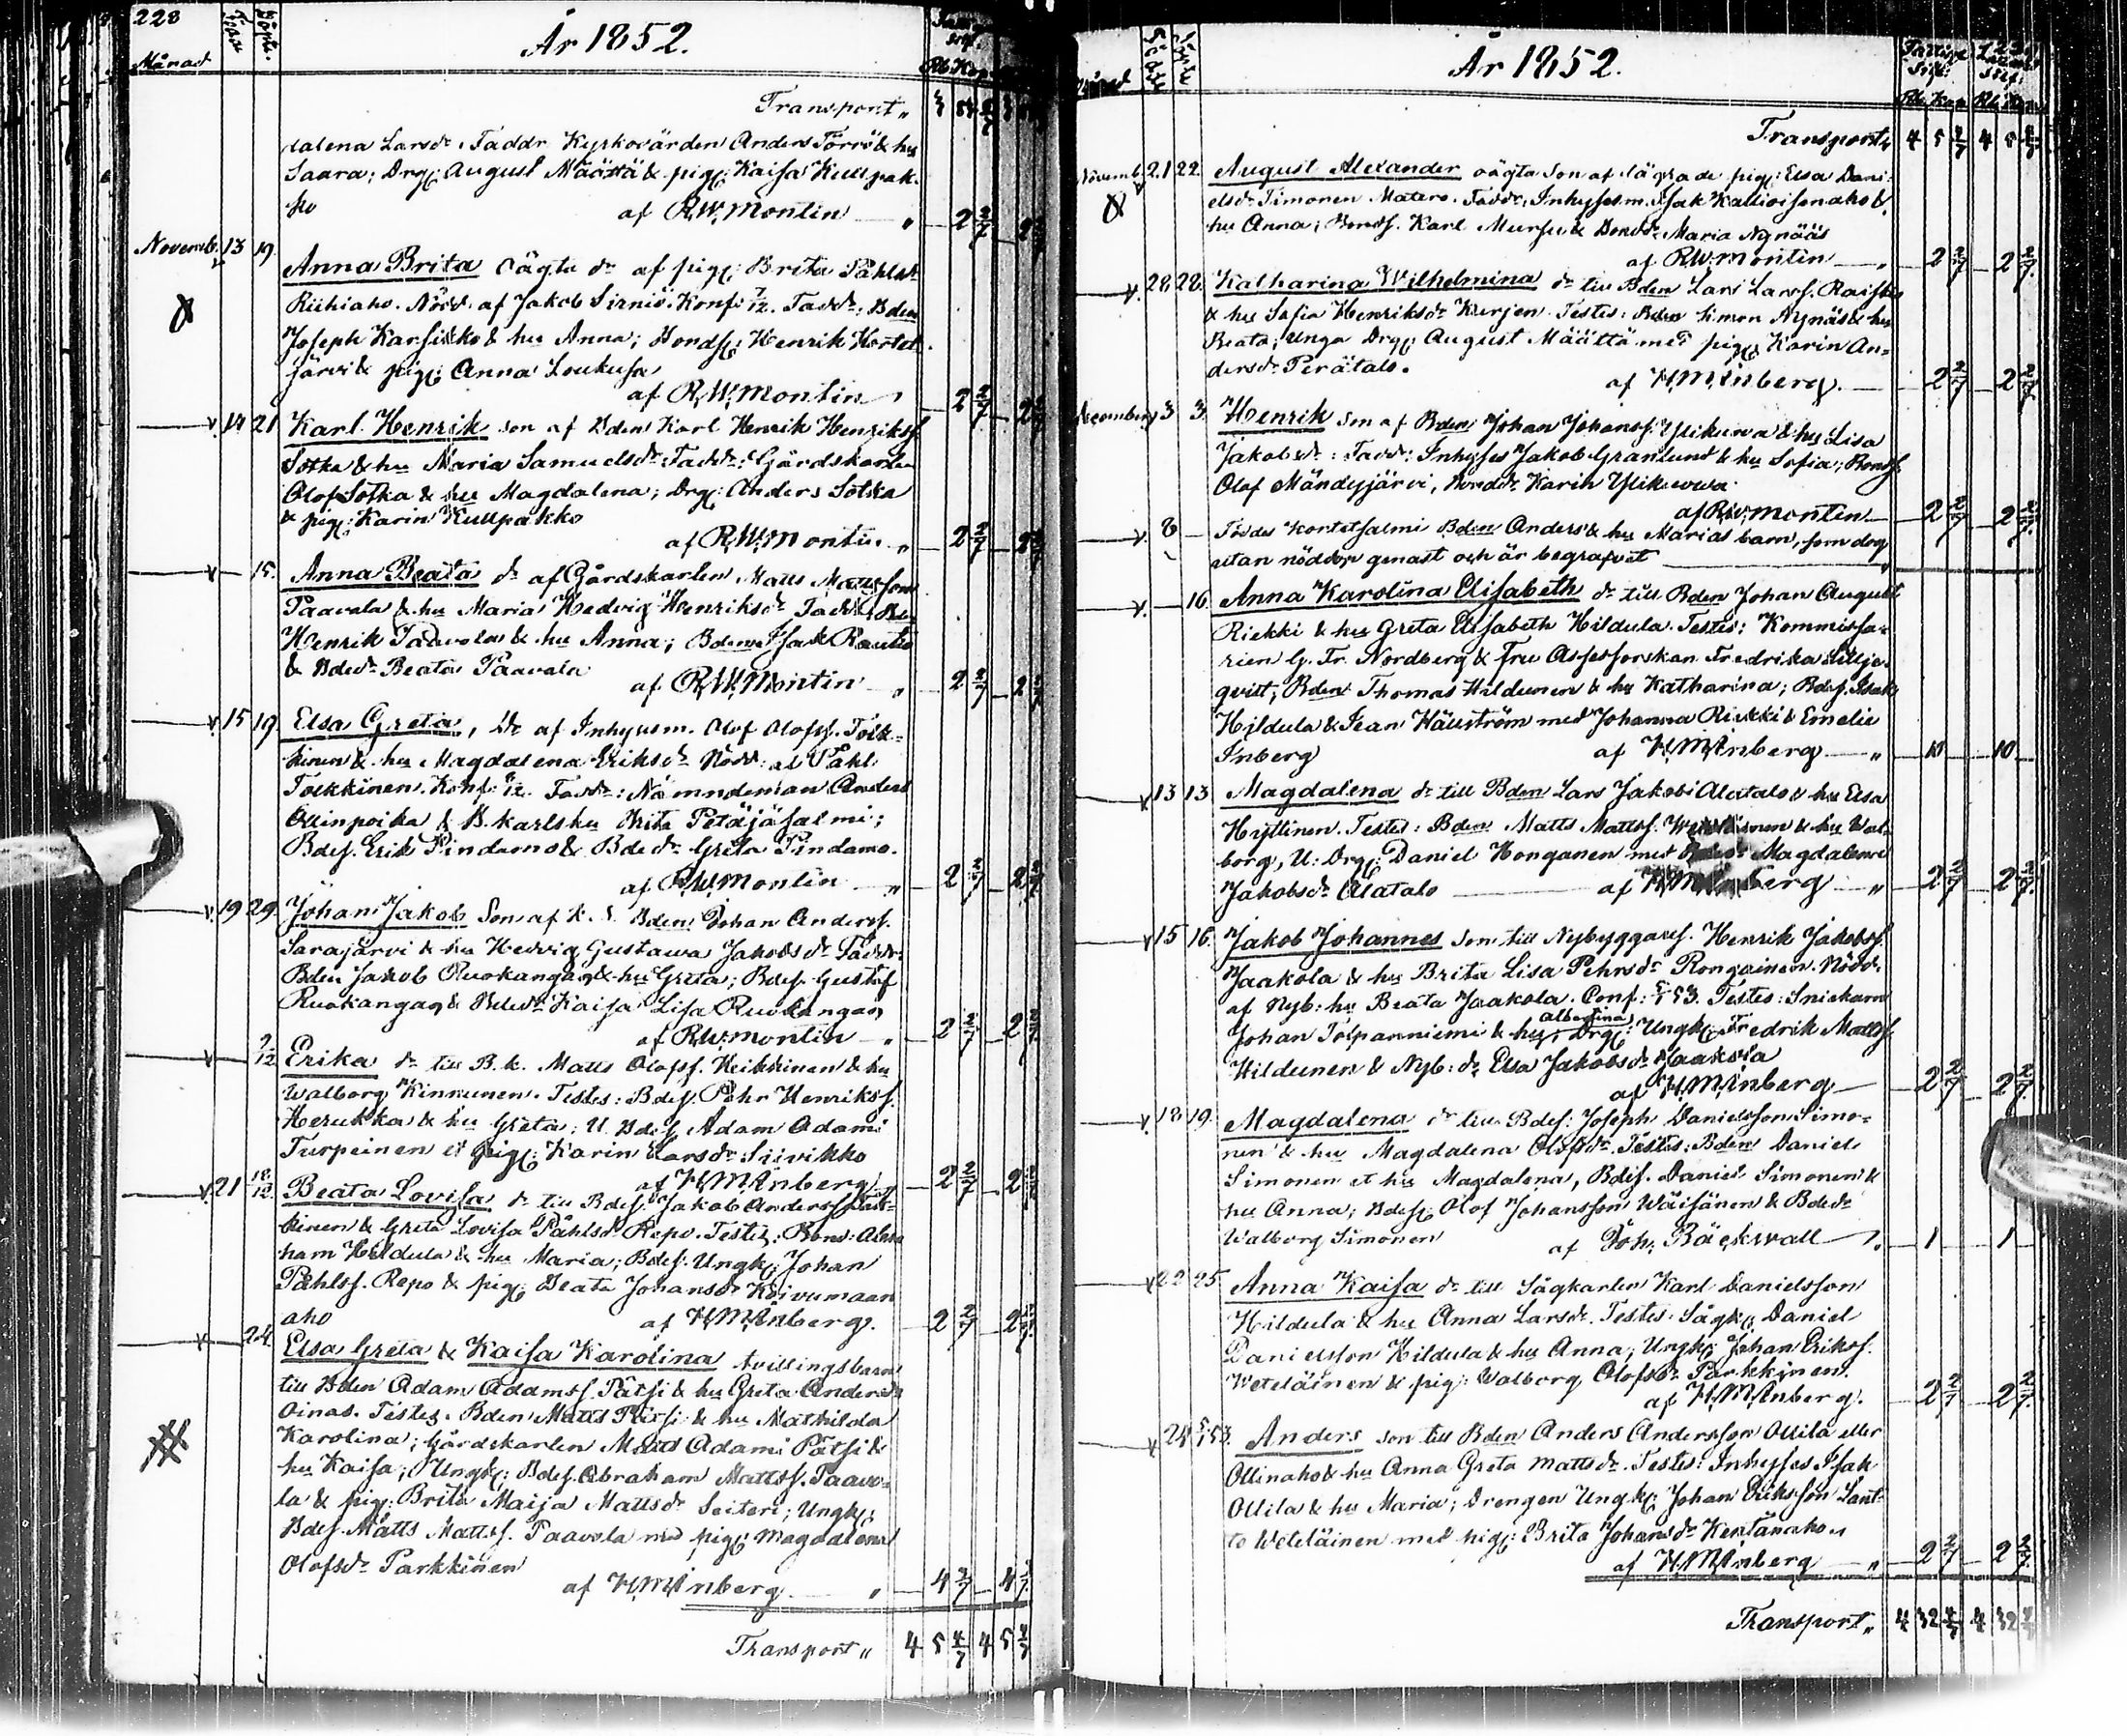 228
År 1852.
Månad
Transport
dalena Larsdr. Faddr Kyrkovärden Anders Törrö & hu
Saara; Drg: August Määttä & pig: Kaisa Kullpak-
ko af R.W. Montin 2 2/7
Novemb. 13 19 Anna Brita oägta dr af pig: Brita Påhlsdr
Riihiaho. Nödd. af Jakob Sirniö. Konf. 7/12. Fadd: Bden
Joseph Karsikko & hu Anna; Bonds: Henrik Kortet-
järvi & pig: Anna Loukusa
af R.W. Montin 2 2/7
14 21 Karl Henrik son af Bden Karl Henrik Henrikss.
Sotka & hu Maria Samuelsdr. Fadd: Gårdskarlen
Olof Sotka & hu Magdalena; Drg: Anders Sotka
& pig: Karin Kullpakko
af R.W. Montin 2 2/7
15. Anna Beata dr af Gårdskarlen Matts Mattsson
Paavola & hu Maria Hedvig Henriksdr Fadd: Bden
Henrik Paavola & hu Anna; Bden Isak Rautio
& Bdedr Beata Paavola
af R.W. Montin 2 2/7
15 19. Elsa Greta, dr af Inhysesm. Olof Olofss. Tolk-
kinen & hu Magdalena Eriksdr Nödd: af Påhl
Tolkkinen. Konf. /12. Fadd: Nämndeman Anders
Ollinpoika & B. karls hu Brita Petäjäsalmi;
Bdes. Erik Pindamo & Bdedr Greta Pindamo.
af R.W. Montin 2 2/7
19 29. Johan Jakob Son af Bden Johan Anderss.
Sarajärvi & hu Hedvig Gustava Jakobsdr Fadd:
Bden Jakob Ruokangas & hu Greta; Bdes. Gustaf
Ruokangas & Bdedr Kaisa Lisa Ruokangas
af R.W. Montin 2 2/7
7/12 Erika dr till B.k. Matts Olofss. Heikkinen & hu
Walborg Kinnunen. Testes: Bdes. Pehr Henrikss.
Herukka & hu Greta; U. Bdes Adam Adami
Turpeinen et pig: Karin Larsdr Siivikko
af H.M. Inberg 2 2/7
21 18/12 Beata Lovisa dr till Bdes. Jakob Anderss.
kinen & Greta Lovisa Påhlsdr Repo. Testes: Bond: Abra-
ham Hildula & hu Maria; Bdes. Ungk: Johan
Påhlss. Repo & pig: Beata Johansdr Koivumaan
aho af H.M. Inberg. 2 2/7
24. Elsa Greta & Kaisa Karolina tvillingsbarn
till Bden Adam Adamss. Pätsi & hu Greta Andersdr
Oinas. Testes. Bden Matts Pätsi & hu Mathilda
Karolina; Gårdskarlen Matts Adami Pätsi &
hu Kaisa; Ungk: Bdes. Abraham Mattss. Paavo-
la & pig: Brita Maija Mattsdr Seiteri; Ungk:
Bdes. Matts Mattss. Paavola med pig: Magdalena
Olofsdr Parkkinen
af H.M. Inberg 4 4/7
Transport 4 5 4/7 4 5 4/7
År 1852.
Transport 4 5 4/7 4 5 4/7
Novemb. 21 22. August Alexander oägta son af lägrade pig: Elsa Dani-
elsdr Timonen Matero. Fadd: Inhysesm. Isak Kallioisenaho &
hu Anna; Bonds. Karl Mursu & Bondr Maria Nynääs
af R.W. Montin 2 2/7 2 2/7
28 28. Katharina Wilhelmina dr till Bden Lars Larss.
& hu Sofia Henriksdr Kurjen. Testes: Bden Simon Nynäs & hu
Beata; Unga Drg: August Määttä med pig: Karin An-
dersdr Perätalo.
af H.M. Inberg. 2 2/7 2 2/7
December 3 3. Henrik son af Bden Johan Johanss. Ylikurva & hu Lisa
Jakobsdr: Fadd: Inhyses Jakob Granlund & hu Sofia; Bonds
Olof Mändyjärvi, Bonddr Karin Ylikurva
af R.W. Montin 2 2/7 2 2/7
8 Föddes Kortesalmi Bden Anders & hu Marias barn, som dog
utan nöddop genast och är begrafvet
16. Anna Karolina Elisabeth dr till Bden Johan August
Riekki & hu Greta Elisabeth Hildula. Testes: Kommissa-
rien G. Fr. Nordberg & Fru Assessorskan Fredrika Lillje-
qvist; Bden Thomas Hildunen & hu Katharina; Bdes. Isak
Hildula & Jean Häuström med Johanna Riekki & Emelie
Inberg af H.M. Inberg 10 10
13 13. Magdalena dr till Bden Lars Jakobi Alatalo & hu Elsa
Hyttinen. Testes: Bden Matts Mattss. & hu Wal-
borg, U. Drg: Daniel Honganen med Magdalena
Jakobsdr Alatalo af H.M. Inberg 2 2/7 2 2/7
15 16. Jakob Johannes son till Nybyggares. Henrik Jakobss.
Jaakola & hu Brita Lisa Pehrsdr Rongainen. Nödd:
af Nyb: hu Beata Jaakola. Conf: 53. Testes: Snickarn
Johan Tolpanniemi & hu Albertina; Drg: Ungk: Fredrik Mattss.
Hildunen & Nyb: dr Elsa Jakobsdr Jaakola
af H.M. Inberg 2 2/7 2 2/7
18 19. Magdalena dr till Bdes: Joseph Danielsson Simo-
nen & hu Magdalena Olofsdr. Testes: Bden Daniel
Simonen et hu Magdalena, Bdes. Daniel Simonen &
hu Anna; Bdes: Olof Johansson Wäisänen & Bdedr
Walborg Simonen af Joh. Bäckvall 1 1
22 25. Anna Kaisa dr till Sågkarlen Karl Danielsson
Hildula & hu Anna Larsdr. Testes: Sågk: Daniel
Danielsson Hildula & hu Anna; Ungk: Johan Erikss.
Weteläinen & pig: Walborg Olofsdr Parkkinen.
af H.M. Inberg. 2 2/7 2 2/7
24 5/1 53. Anders son till Bden Anders Andersson Ollila eller
Ollinaho & hu Anna Greta Mattsdr. Testes: Inhyses Isak
Ollila & hu Maria; Drengen Ungk: Johan Eriksson Lant-
to Weteläinen med pig: Brita Johansdr Kentänaho
af H.M. Inberg 2 2/7 2 2/7
Transport 4 32 4/7 4 32 4/7